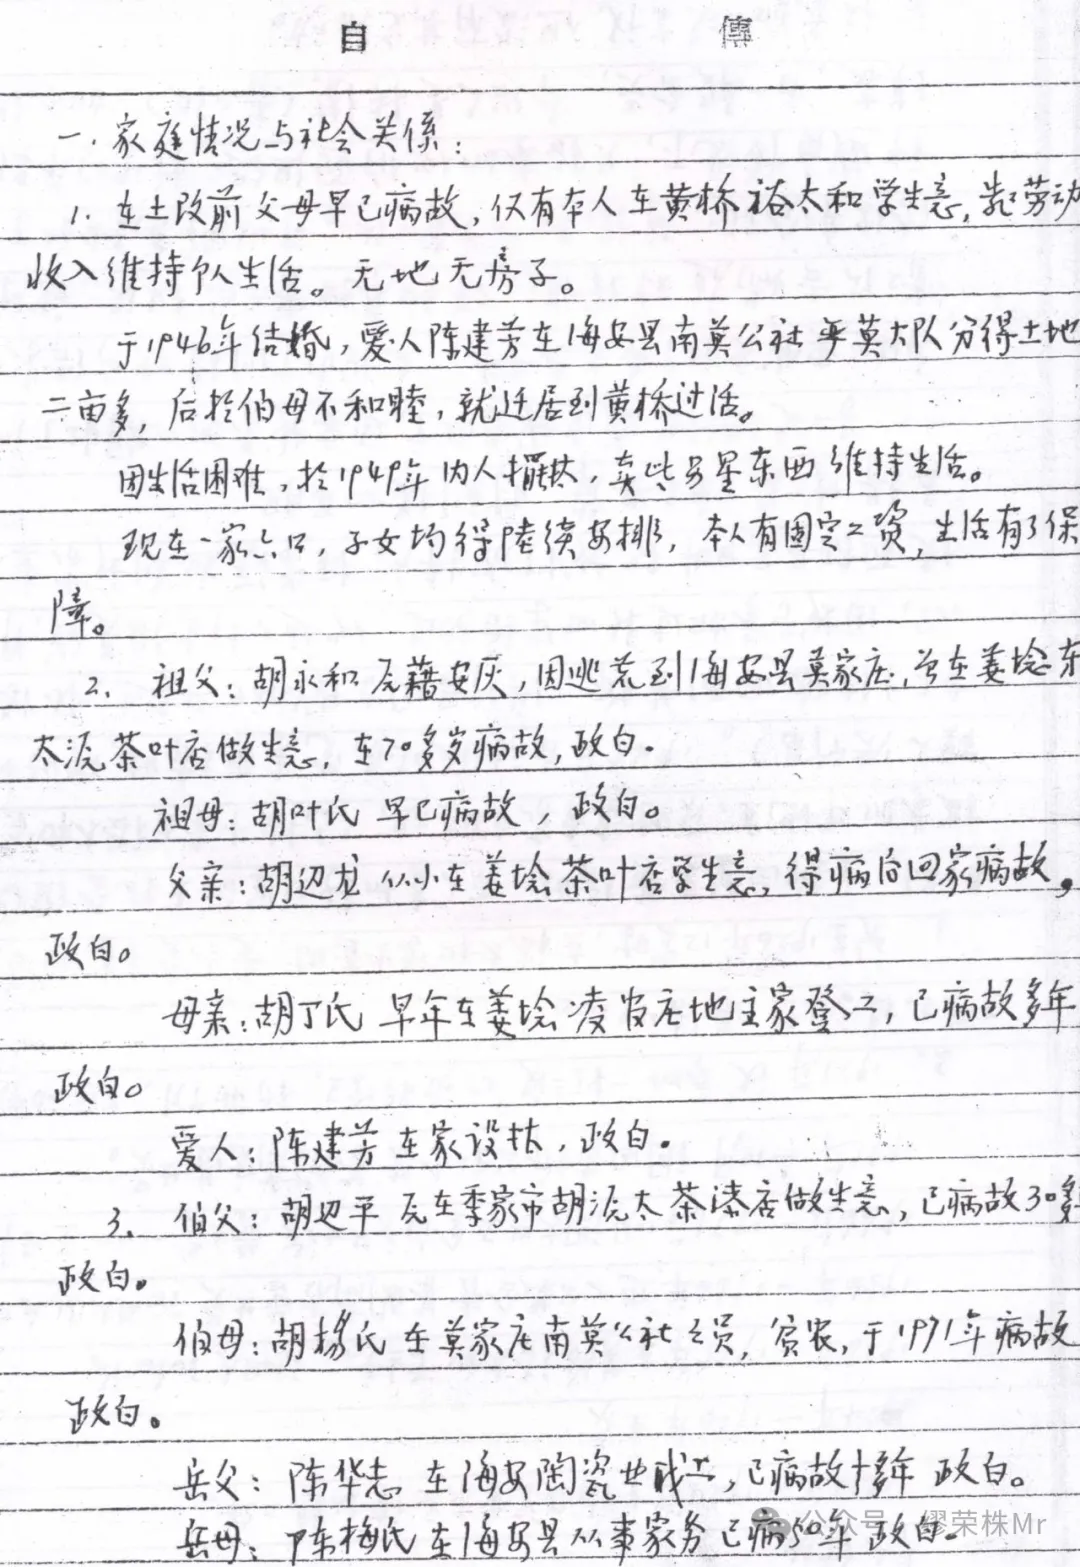 自 傳
一.家庭情况与社会关係:
1.在土改前父母早已病故,仅有本人在黄桥裕太和学生意,靠劳动
收入维持个人生活。无地无房子。
于1946年结婚,爱人陈建芳在海安县南莫公社 莫大队分得土地
二亩多,后於伯母不和睦,就迁居到黄桥过活。
因生活困难,於1949年内人摆摊,卖些另星东西维持生活。
现在一家六口,子女均得陸续安排,本人有固定工资,生活有了保
障。
2.祖父:胡永和原藉安庆,因逃荒到海安县莫家庄,曾在姜埝东
太源茶叶店做生意,在70多岁病故,政白。
祖母:胡叶氏 早已病故,政白。
父亲:胡边龙 从小在姜埝茶叶店学生意,得病后回家病故,
政白。
母亲:胡丁氏 早年在姜埝 庄地主家 工,已病故多年
政白。
爱人:陈建芳 在家设摊,政白。
3.伯父:胡边平 原在季家市胡源太茶漆店做生意,已病故30多
政白。
伯母:胡杨氏 在莫家庄南莫公社社员,贫农,于1971年病故
政白。
岳父:陈华志 在海安陶瓷业 ,已病故十多年 政白。
岳母:陈梅氏在海安县从事家务 已病50年 政白。
公众号·缪荣株Mr